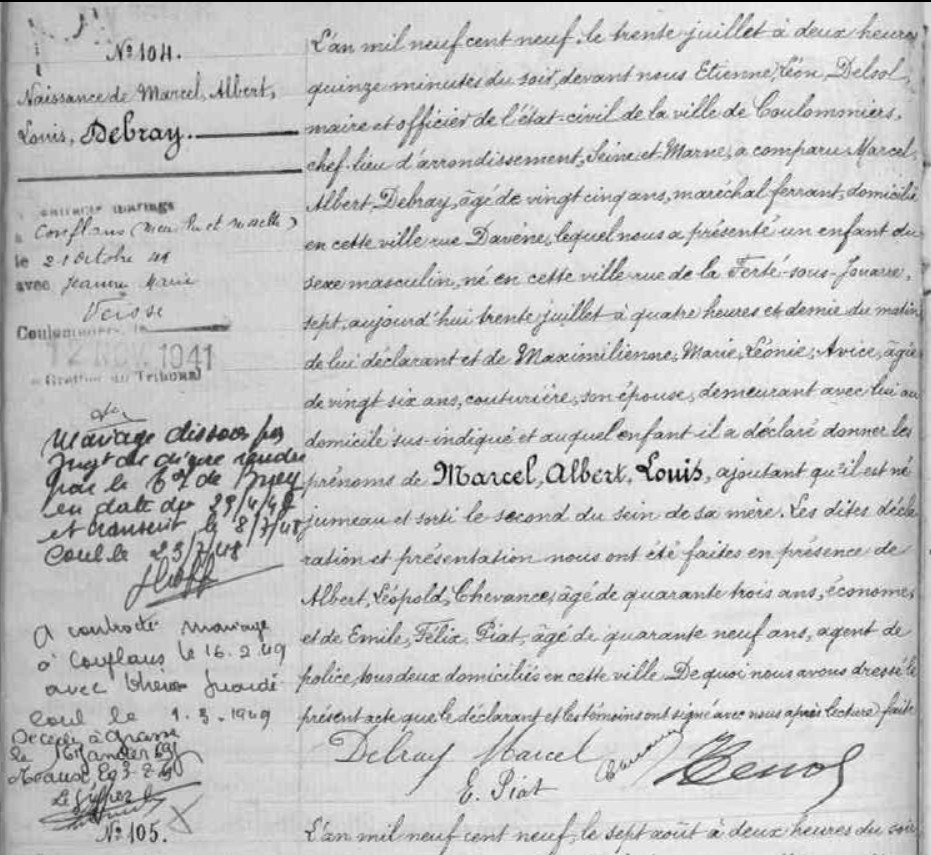 N° 104.
Naissance de Marcel, Albert,
Louis, Debray.
L'an mil neuf cent neuf, le trente juillet à deux heures
quinze minutes du soir, devant nous Etienne, Léon, Delsol,
maire et officier de l'état-civil de la ville de Coulommiers,
chef-lieu d'arrondissement, Seine-et-Marne, a comparu Marcel,
Albert, Debray, âgé de vingt cinq ans, maréchal ferrant, domicilié
en cette ville rue Davène, lequel nous a présenté un enfant du
sexe masculin, né en cette ville rue de la Ferté-sous-Jouarre,
sept, aujourd'hui trente juillet à quatre heures et demie du matin
de lui déclarant et de Maximilienne, Marie, Léonie, Avice, âgée
de vingt six ans, couturière, son épouse, demeurant avec lui au
domicile sus-indiqué et auquel enfant il a déclaré donner les
prénoms de Marcel, Albert, Louis, ajoutant qu'il est né
jumeau et sorti le second du sein de sa mère. Les dites décla
ration et présentation nous ont été faites en présence de
Albert, Léopold, Chevance, âgé de quarante trois ans, économe,
et de Emile, Félix, Piat, âgé de quarante neuf ans, agent de
police, tous deux domiciliés en cette ville. De quoi nous avons dressé le
présent acte que le déclarant et les témoins ont signé avec nous après lecture faite
Debray Marcel
E. Piat
mariage
à Conflans
le 21 octobre 41
avec Jeanne Marie
Veisse
Coulommiers, le
12 NOV. 1941
Greffier du Tribunal
Mariage dissous par
jugt de divorce rendu
par le de Briey
en date du 29/4/48
et transcrit le 8/7/48
Coul. le 23/7/48
A contracté mariage
à Conflans le 16.2.49
avec
Coul le 1.3.1949
Décédé à Grasse
le janvier 69
Meaux, le 3-2-69
Le Greffier
N° 105.
L'an mil neuf cent neuf, le sept août à deux heures du soir